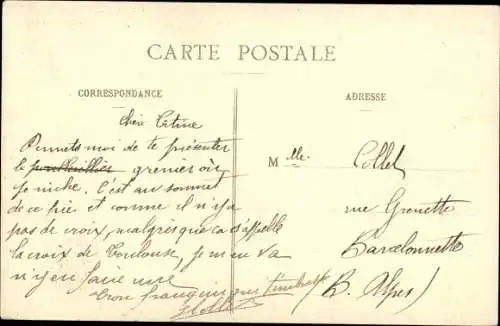 CARTE POSTALE
CORRESPONDANCE
ADRESSE
Chère Titine
Permets moi de te présenter
le grenier où
je niche. C'est au sommet
de ce pic et comme il n'y a
pas de croix, malgrés que ça s'appelle
la croix de Toulouse, je m'en va
n'y en faire une
Mlle. Collet
rue Grenette
Barcelonnette
(B. Alpes)